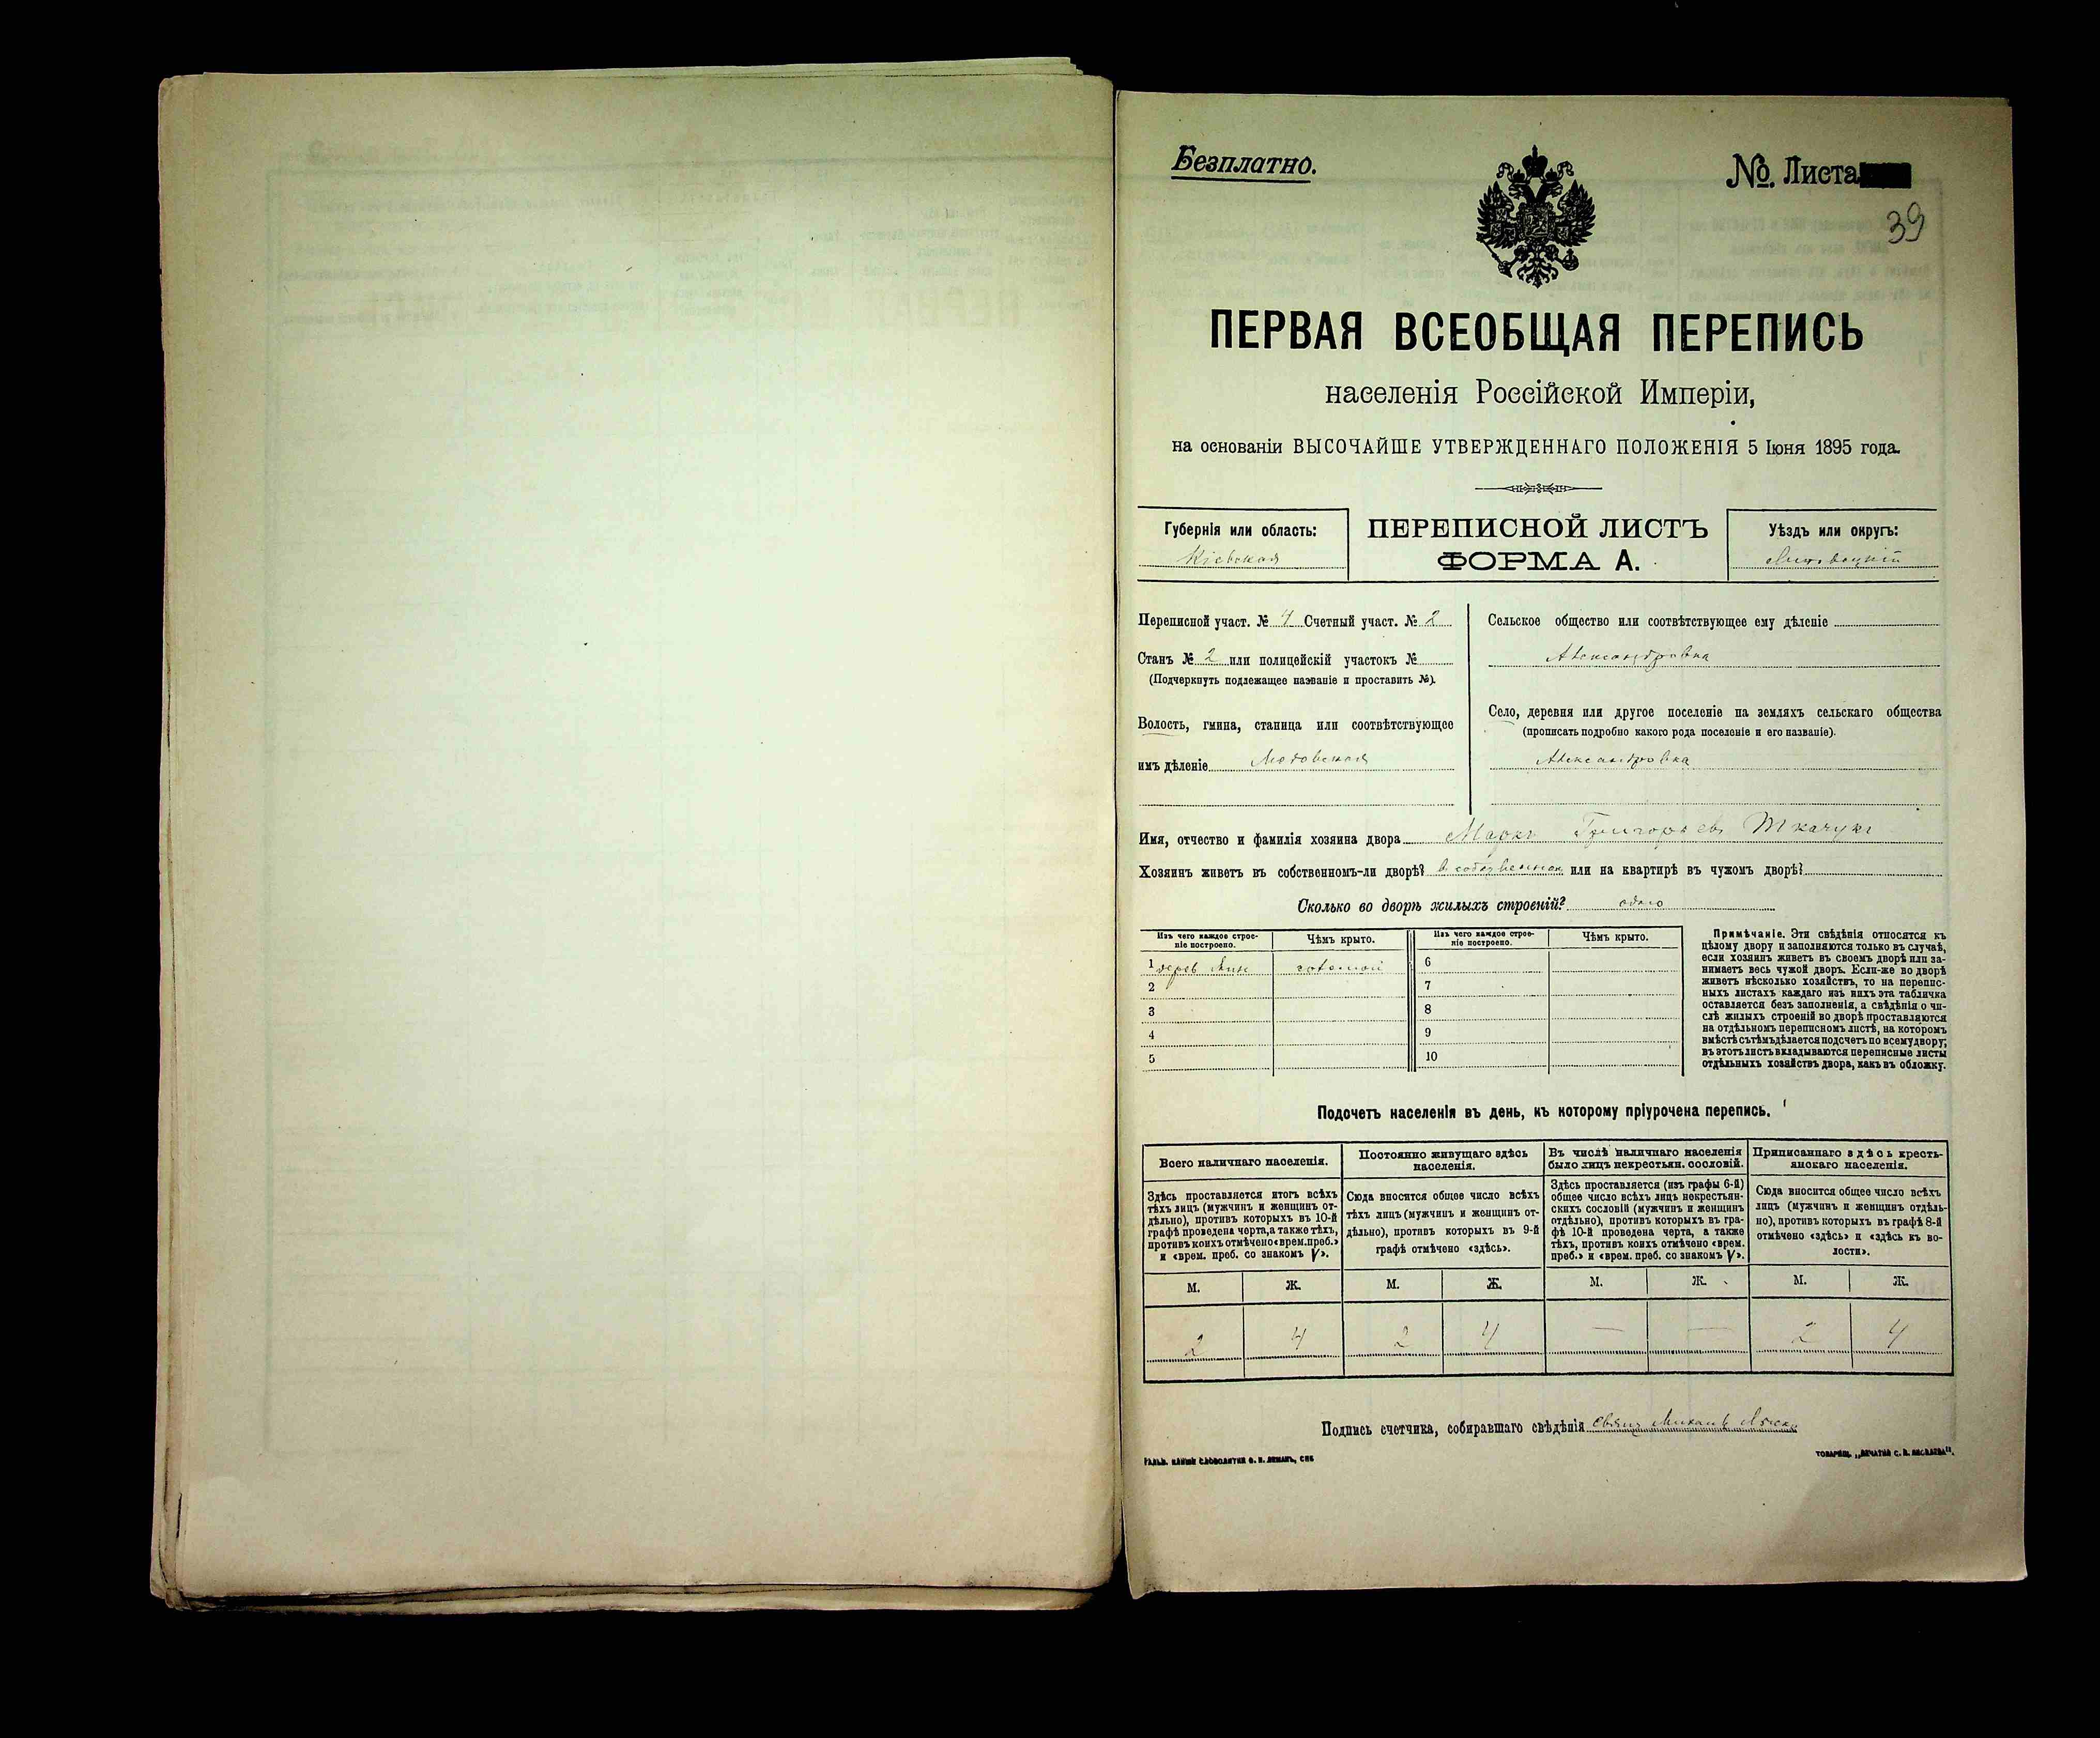 Безплатно.
№. Листа
39
ПЕРВАЯ ВСЕОБЩАЯ ПЕРЕПИСЬ
населенія Россійской Имперіи,
на основаніи ВЫСОЧАЙШЕ УТВЕРЖДЕННАГО ПОЛОЖЕНІЯ 5 Іюня 1895 года.
Губернія или область:
Кіевская
ПЕРЕПИСНОЙ ЛИСТЪ
ФОРМА А.
Уѣздъ или округъ:
Переписной участ. № 4 Счетный участ. № 2
Станъ № 2 или полицейскій участокъ №
(Подчеркнуть подлежащее названіе и проставить №).
Волость, гмина, станица или соотвѣтствующее
имъ дѣленіе
Сельское общество или соотвѣтствующее ему дѣленіе
Александровка
Село, деревня или другое поселеніе на земляхъ сельскаго общества
(прописать подробно какого рода поселеніе и его названіе).
Александровка
Имя, отчество и фамилія хозяина двора Маркъ Григорьевъ Ткачукъ
Хозяинъ живетъ въ собственномъ-ли дворѣ? в собственном или на квартирѣ въ чужомъ дворѣ?
Сколько во дворѣ жилыхъ строеній? одно
Изъ чего каждое строе-
ніе построено.
Чѣмъ крыто.
Изъ чего каждое строе-
ніе построено.
Чѣмъ крыто.
1
6
2
7
3
8
4
9
5
10
Примѣчаніе. Эти свѣдѣнія относятся къ
цѣлому двору и заполняются только въ случаѣ,
если хозяинъ живетъ въ своемъ дворѣ или за-
нимаетъ весь чужой дворъ. Если-же во дворѣ
живетъ нѣсколько хозяйствъ, то на перепис-
ныхъ листахъ каждаго изъ нихъ эта табличка
оставляется безъ заполненія, а свѣдѣнія о чи-
слѣ жилыхъ строеній во дворѣ проставляются
на отдѣльномъ переписномъ листѣ, на которомъ
вмѣстѣ съ тѣмъ дѣлается подсчетъ по всему двору;
въ этотъ листъ вкладываются переписные листы
отдѣльныхъ хозяйствъ двора, какъ въ обложку.
Подсчетъ населенія въ день, къ которому пріурочена перепись.
Всего наличнаго населенія.
Постоянно живущаго здѣсь
населенія.
Въ числѣ наличнаго населенія
было лицъ некрестьян. сословій.
Приписаннаго здѣсь кресть-
янскаго населенія.
Здѣсь проставляется итогъ всѣхъ
тѣхъ лицъ (мужчинъ и женщинъ от-
дѣльно), противъ которыхъ въ 10-й
графѣ проведена черта, а также тѣхъ,
противъ коихъ отмѣчено «врем. преб.»
и «врем. преб. со знакомъ V».
Сюда вносится общее число всѣхъ
тѣхъ лицъ (мужчинъ и женщинъ от-
дѣльно), противъ которыхъ въ 9-й
графѣ отмѣчено «здѣсь».
Здѣсь проставляется (изъ графы 6-й)
общее число всѣхъ лицъ некрестьян-
скихъ сословій (мужчинъ и женщинъ
отдѣльно), противъ которыхъ въ гра-
фѣ 10-й проведена черта, а также
тѣхъ, противъ коихъ отмѣчено «врем.
преб.» и «врем. преб. со знакомъ V».
Сюда вносится общее число всѣхъ
лицъ (мужчинъ и женщинъ отдѣль-
но), противъ которыхъ въ графѣ 8-й
отмѣчено «здѣсь» и «здѣсь къ во-
лости».
М. Ж. М. Ж. М. Ж. М. Ж.
2 4 2 4 — — 2 4
Подпись счетчика, собиравшаго свѣдѣнія